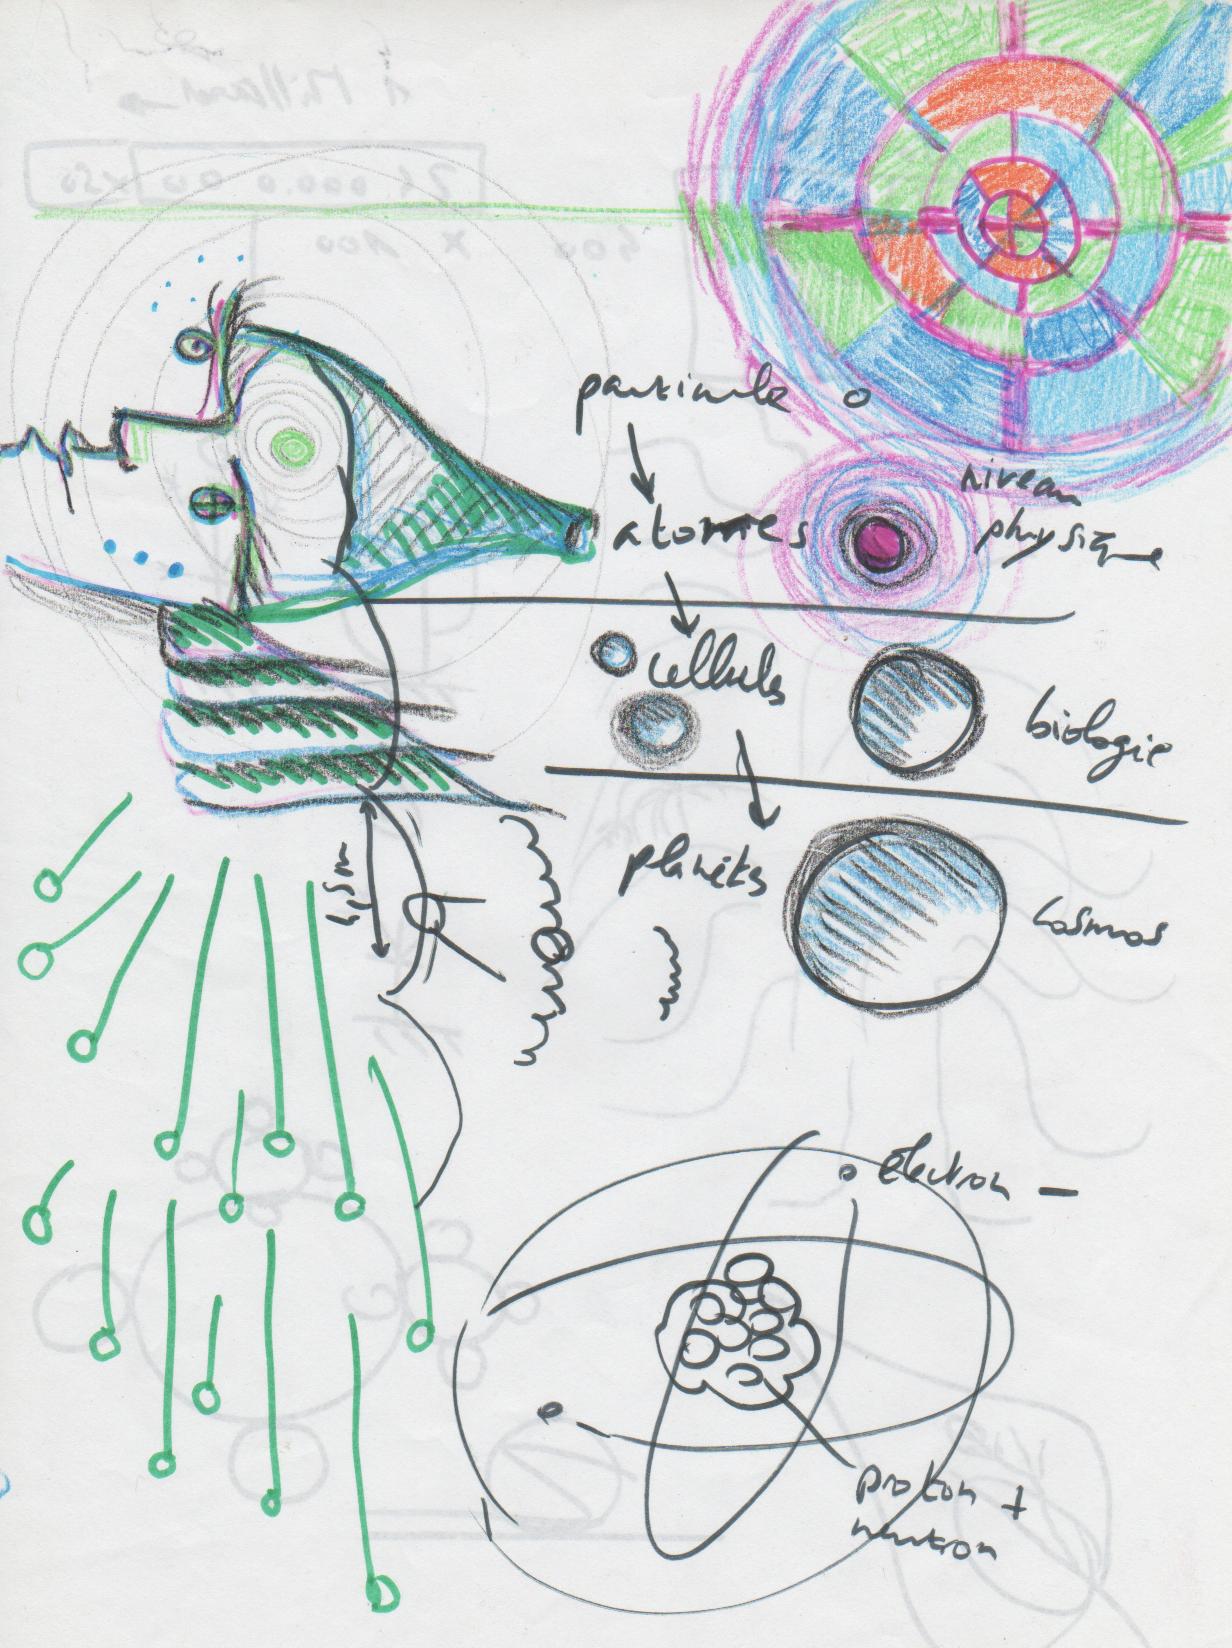 particule
atomes
niveau
physique
cellules
biologie
planètes
1,5m
cosmos
électron -
proton +
neutron